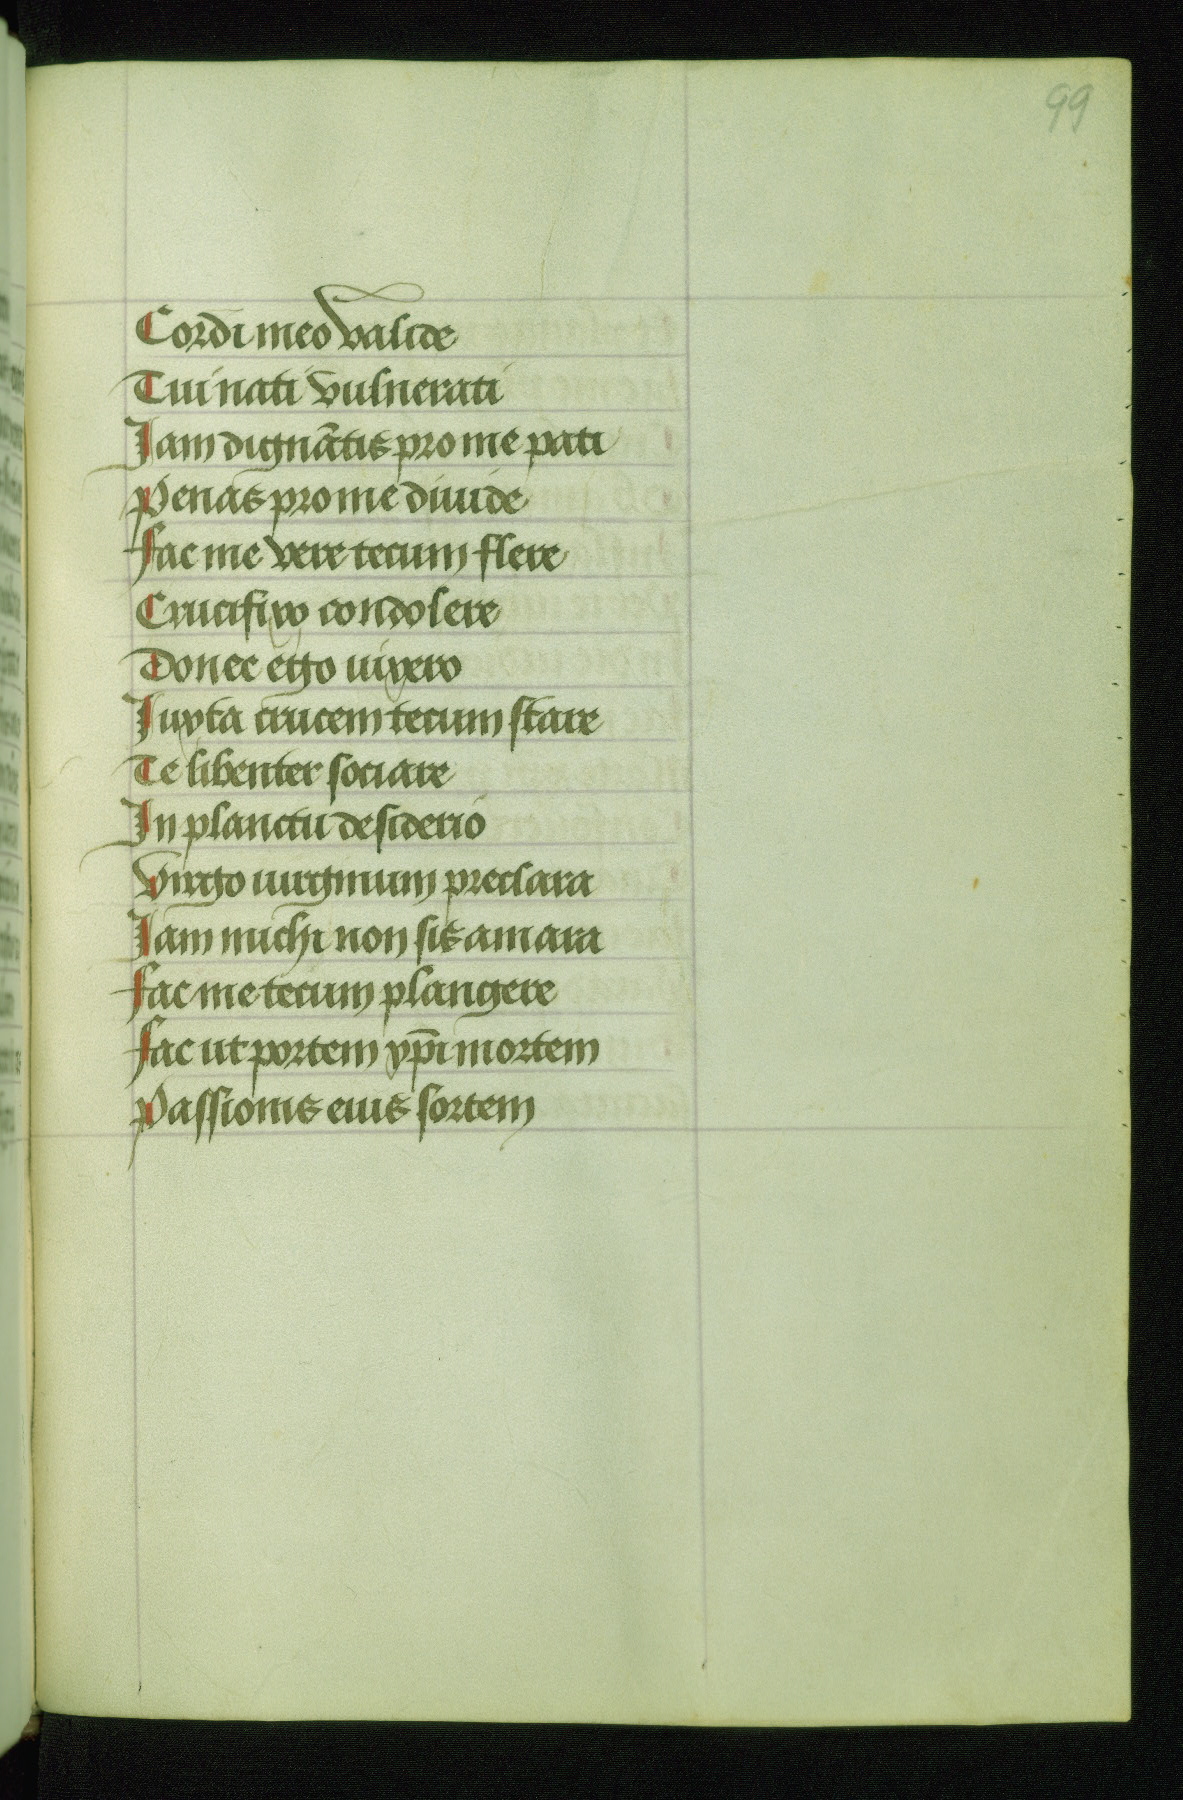 99
Cordi meo valide
Tui nati vulnerati
Jam dignãtis pro me pati
Penas pro me diuide
Fac me vere tecum flere
Crucifixo condolere
Donec ego uixero
Juxta crucem tecum stare
Te libenter sociare
In planctu desiderio
Virgo uirginum preclara
Jam michi non sis amara
Fac me tecum plangere
Fac ut portem xp̄i mortem
Passionis eius sortem